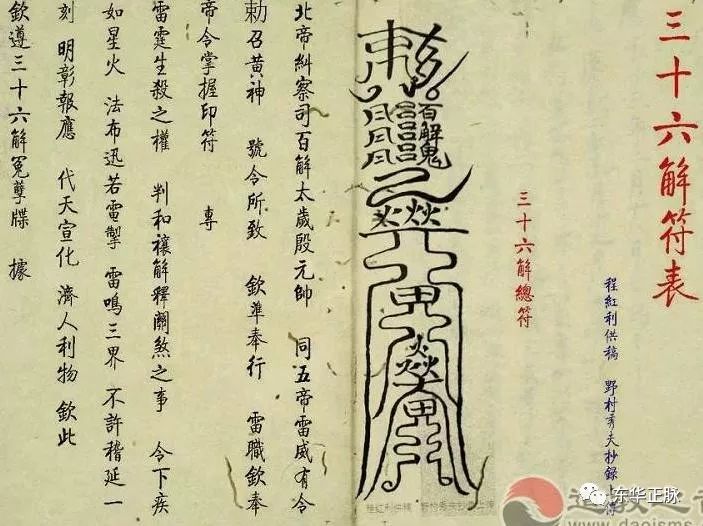 三十六解符表
程紅利供稿 野村秀夫抄錄上傳
三十六解總符
百解鬼
北帝糾察司百解太歲殿元帥 同五帝雷威有令
勅召黃神 號令所致 欽準奉行 雷職欽奉
帝令掌握印符 專
雷霆生殺之權 判和禳解釋關煞之事 令下疾
如星火 法布迅若電掣 雷鳴三界 不許稽延一
刻 明彰報應 代天宣化 濟人利物 欽此
欽遵三十六解冤孽牒 據
东华正脉
道教之音
www.daoisms